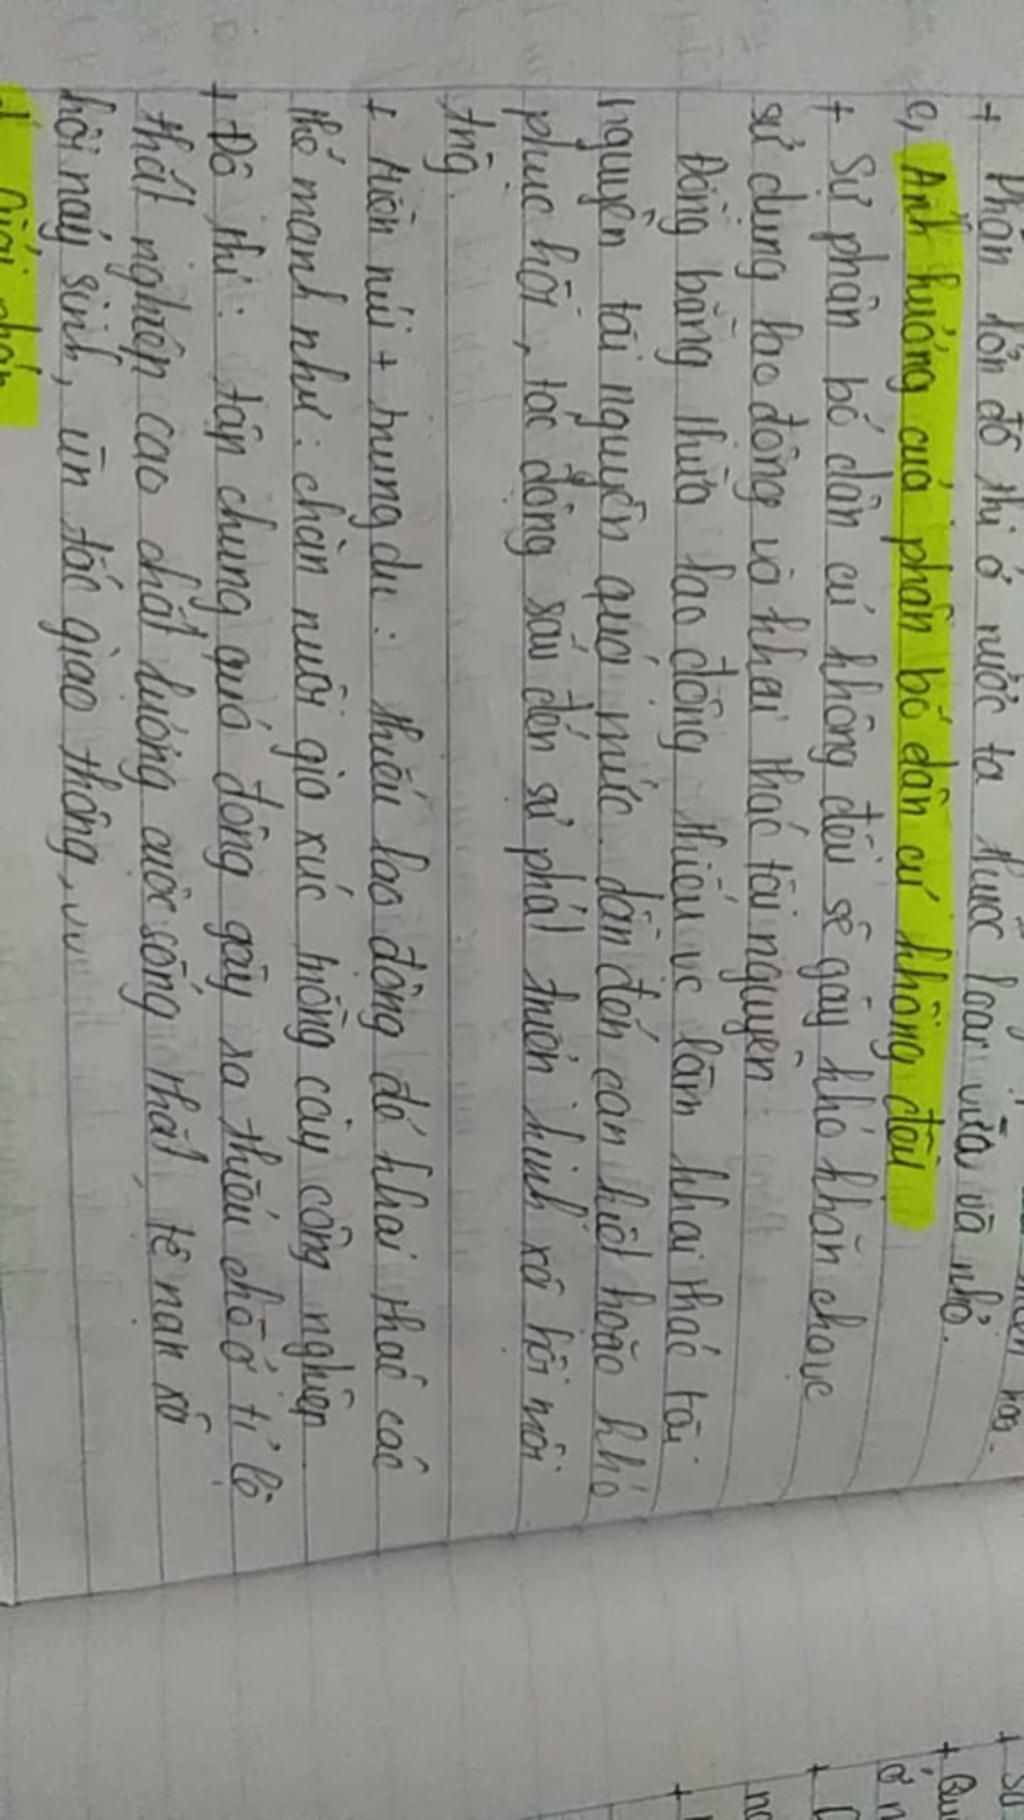 + Phần lớn đô thị ở nước ta thuộc loại vừa và nhỏ.
c, Ảnh hưởng của phân bố dân cư không đều
+ Sự phân bố dân cư không đều sẽ gây khó khăn cho vc
sử dụng lao động và khai thác tài nguyên
Đồng bằng thừa lao động thiếu vc làm khai thác tài
nguyên tài nguyên quá mức dẫn đến cạn kiệt hoặc khó
phục hồi, tác động xấu đến sự phát triển kinh xã hội môi
trg.
+ Miền núi + trung du: thiếu lao động để khai thác các
thế mạnh như: chăn nuôi gia xúc trồng cây công nghiệp
+ Đô thị: tập chung quá đông gây ra thiếu chỗ ở tỉ lệ
thất nghiệp cao chất lượng cuộc sống thấp, tệ nạn xã
hội nảy sinh, ùn tắc giao thông, vv